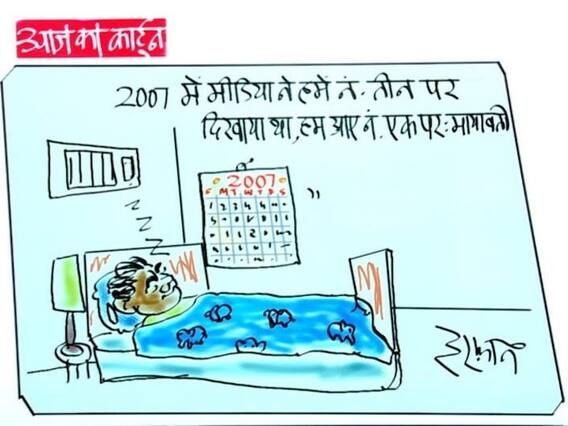 आज का कार्टून
2007 में मीडिया ने हमें नं. तीन पर
दिखाया था, हम आए नं. एक पर: मायावती
Z
Z
Z
2007
S M T W T F S
इरफान